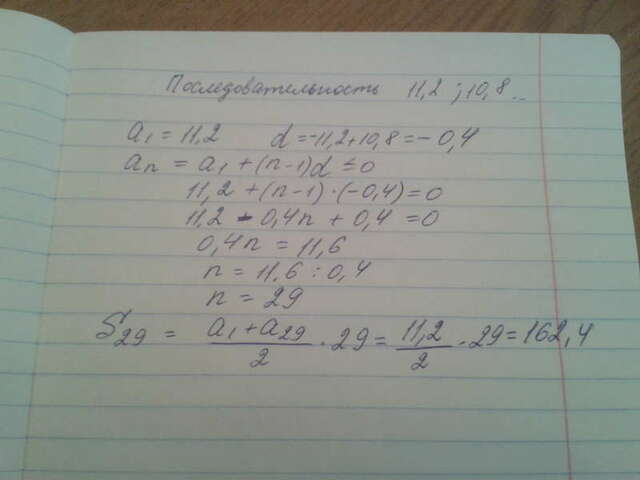 Последовательность 11,2 ; 10,8...
a₁ = 11,2 d = -11,2+10,8 = -0,4
aₙ = a₁ + (n-1)d ≤ 0
11,2 + (n-1) · (-0,4) = 0
11,2 - 0,4n + 0,4 = 0
0,4n = 11,6
n = 11,6 : 0,4
n = 29
S₂₉ = (a₁ + a₂₉)/2 · 29 = 11,2/2 · 29 = 162,4